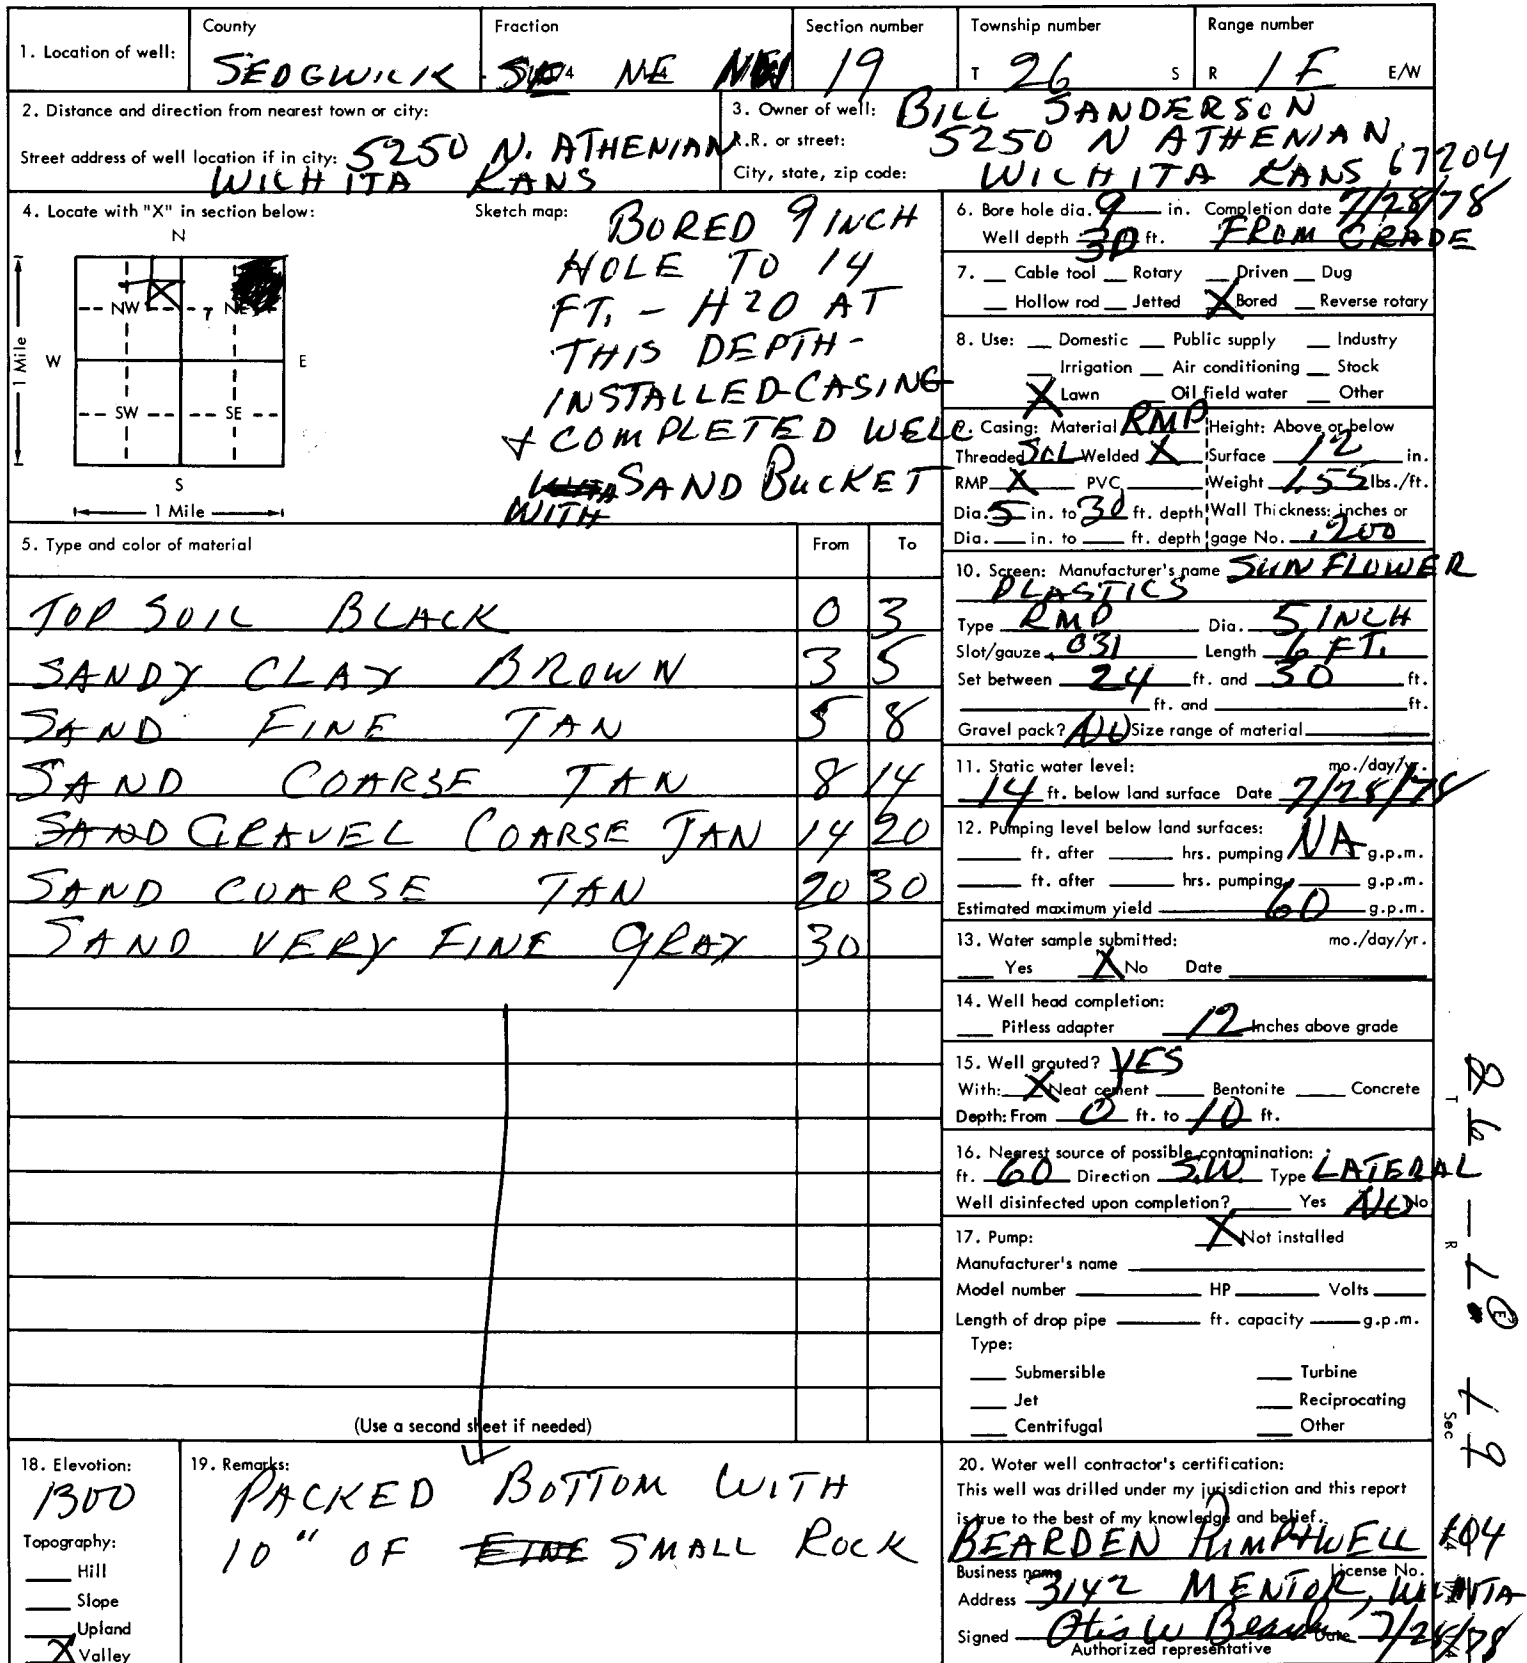 1. Location of well: County SEDGWICK Fraction 1/4 NE Section number 19 Township number T 26 S Range number R 1 E E/W
2. Distance and direction from nearest town or city:
Street address of well location if in city: 5250 N. ATHENIAN
WICHITA KANS
3. Owner of well: BILL SANDERSON
R.R. or street: 5250 N ATHENIAN
City, state, zip code: WICHITA KANS 67204
4. Locate with "X" in section below:
Sketch map:
N
NW NE
W E
SW SE
S
1 Mile
1 Mile
X
BORED 9 INCH
HOLE TO 14
FT. - H20 AT
THIS DEPTH -
INSTALLED-CASING
& COMPLETED WELL
SAND BUCKET
WITH
5. Type and color of material From To
TOP SOIL BLACK 0 3
SANDY CLAY BROWN 3 5
SAND FINE TAN 5 8
SAND COARSE TAN 8 14
SAND GRAVEL COARSE TAN 14 20
SAND COARSE TAN 20 30
SAND VERY FINE GRAY 30
(Use a second sheet if needed)
6. Bore hole dia. 9 in. Completion date 7/28/78
Well depth 30 ft. FROM GRADE
7. __ Cable tool __ Rotary __ Driven __ Dug
__ Hollow rod __ Jetted X Bored __ Reverse rotary
8. Use: __ Domestic __ Public supply __ Industry
__ Irrigation __ Air conditioning __ Stock
X Lawn __ Oil field water __ Other
9. Casing: Material RMP Height: Above or below
Threaded Welded X Surface 12 in.
RMP X PVC Weight 1.55 lbs./ft.
Dia. 5 in. to 30 ft. depth Wall Thickness: inches or
Dia. __ in. to __ ft. depth gage No. .200
10. Screen: Manufacturer's name SUNFLOWER
PLASTICS
Type RMP Dia. 5 INCH
Slot/gauze .031 Length 6 FT.
Set between 24 ft. and 30 ft.
ft. and ft.
Gravel pack? NO Size range of material
11. Static water level: mo./day/yr.
14 ft. below land surface Date 7/28/78
12. Pumping level below land surfaces:
ft. after hrs. pumping NA g.p.m.
ft. after hrs. pumping g.p.m.
Estimated maximum yield 60 g.p.m.
13. Water sample submitted: mo./day/yr.
__ Yes X No Date
14. Well head completion:
__ Pitless adapter 12 Inches above grade
15. Well grouted? YES
With: X Neat cement __ Bentonite __ Concrete
Depth: From 0 ft. to 10 ft.
16. Nearest source of possible contamination:
ft. 60 Direction S.W. Type LATERAL
Well disinfected upon completion? __ Yes NO No
17. Pump: X Not installed
Manufacturer's name
Model number HP Volts
Length of drop pipe ft. capacity g.p.m.
Type:
__ Submersible __ Turbine
__ Jet __ Reciprocating
__ Centrifugal __ Other
18. Elevation:
1300
Topography:
__ Hill
__ Slope
__ Upland
X Valley
19. Remarks:
PACKED BOTTOM WITH
10" OF FINE SMALL ROCK
20. Water well contractor's certification:
This well was drilled under my jurisdiction and this report
is true to the best of my knowledge and belief.
BEARDEN PUMP & WELL 104
Business name License No.
Address 3142 MENTOR, WICHITA
Signed Otis W Bearden Date 7/28/78
Authorized representative
T 26 - R 1 E Sec 19